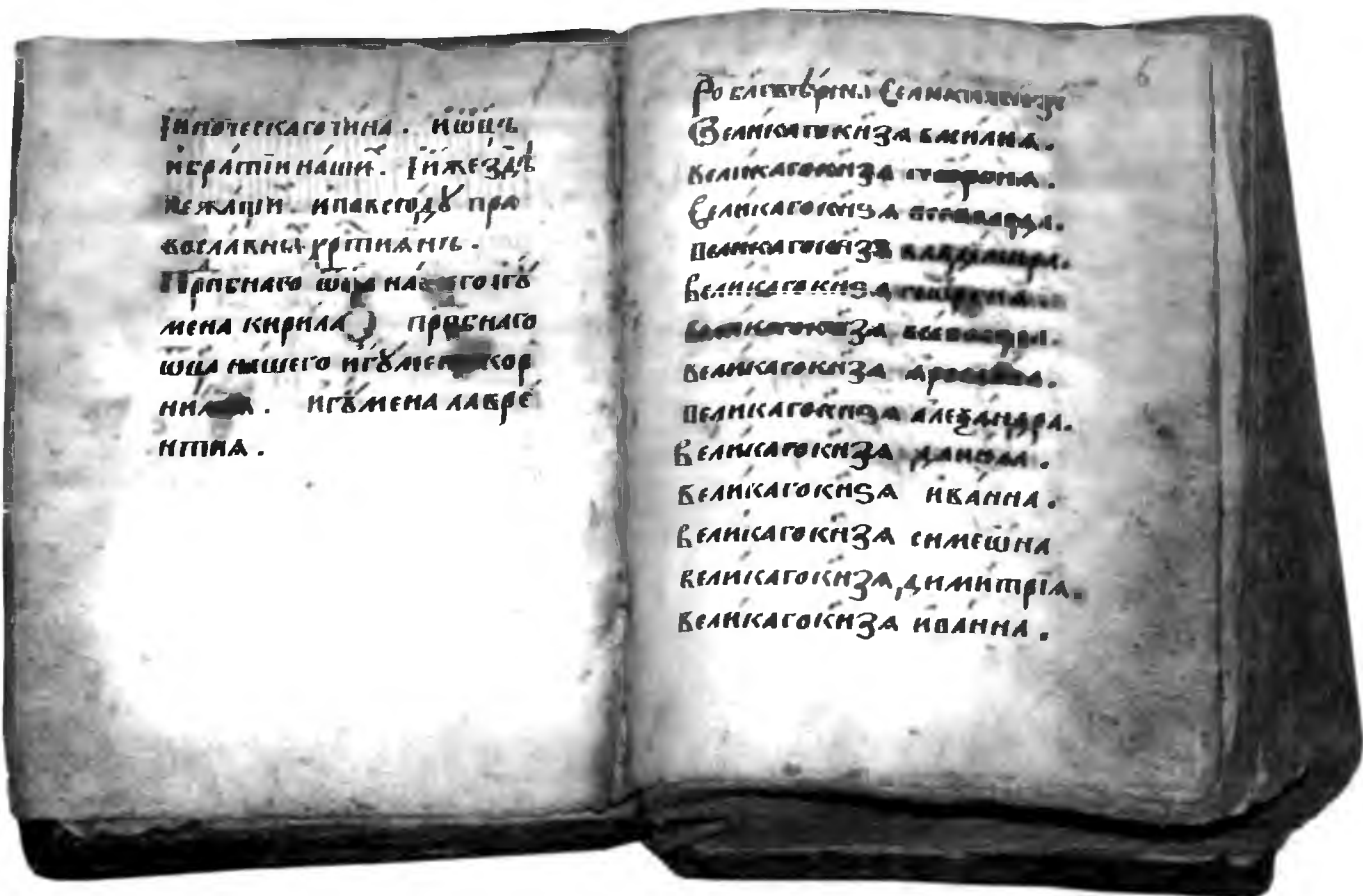 Іиноческаго чина. иѿць
ибратіи наши. Іиже здѣ
лежащи. ипавсюдꙋ пра
вославны хртиянъ.
Прпбнаго ѿца нашего игꙋ
мена кирила прпбнаго
ѿца нашего игꙋмена кор
нилия. игꙋмена лавре
нтиа.
6
Великагокнѧза василиа.
великагокнѧза
Великагокнѧза
великагокнѧза владимира.
Великагокнѧза
великагокнѧза
великагокнѧза
великагокнѧза алеѯандра.
Великагокнѧза данила.
великагокнѧза иванна.
Великагокнѧза симеѡна
великагокнѧза димитріа.
великагокнѧза иванна.